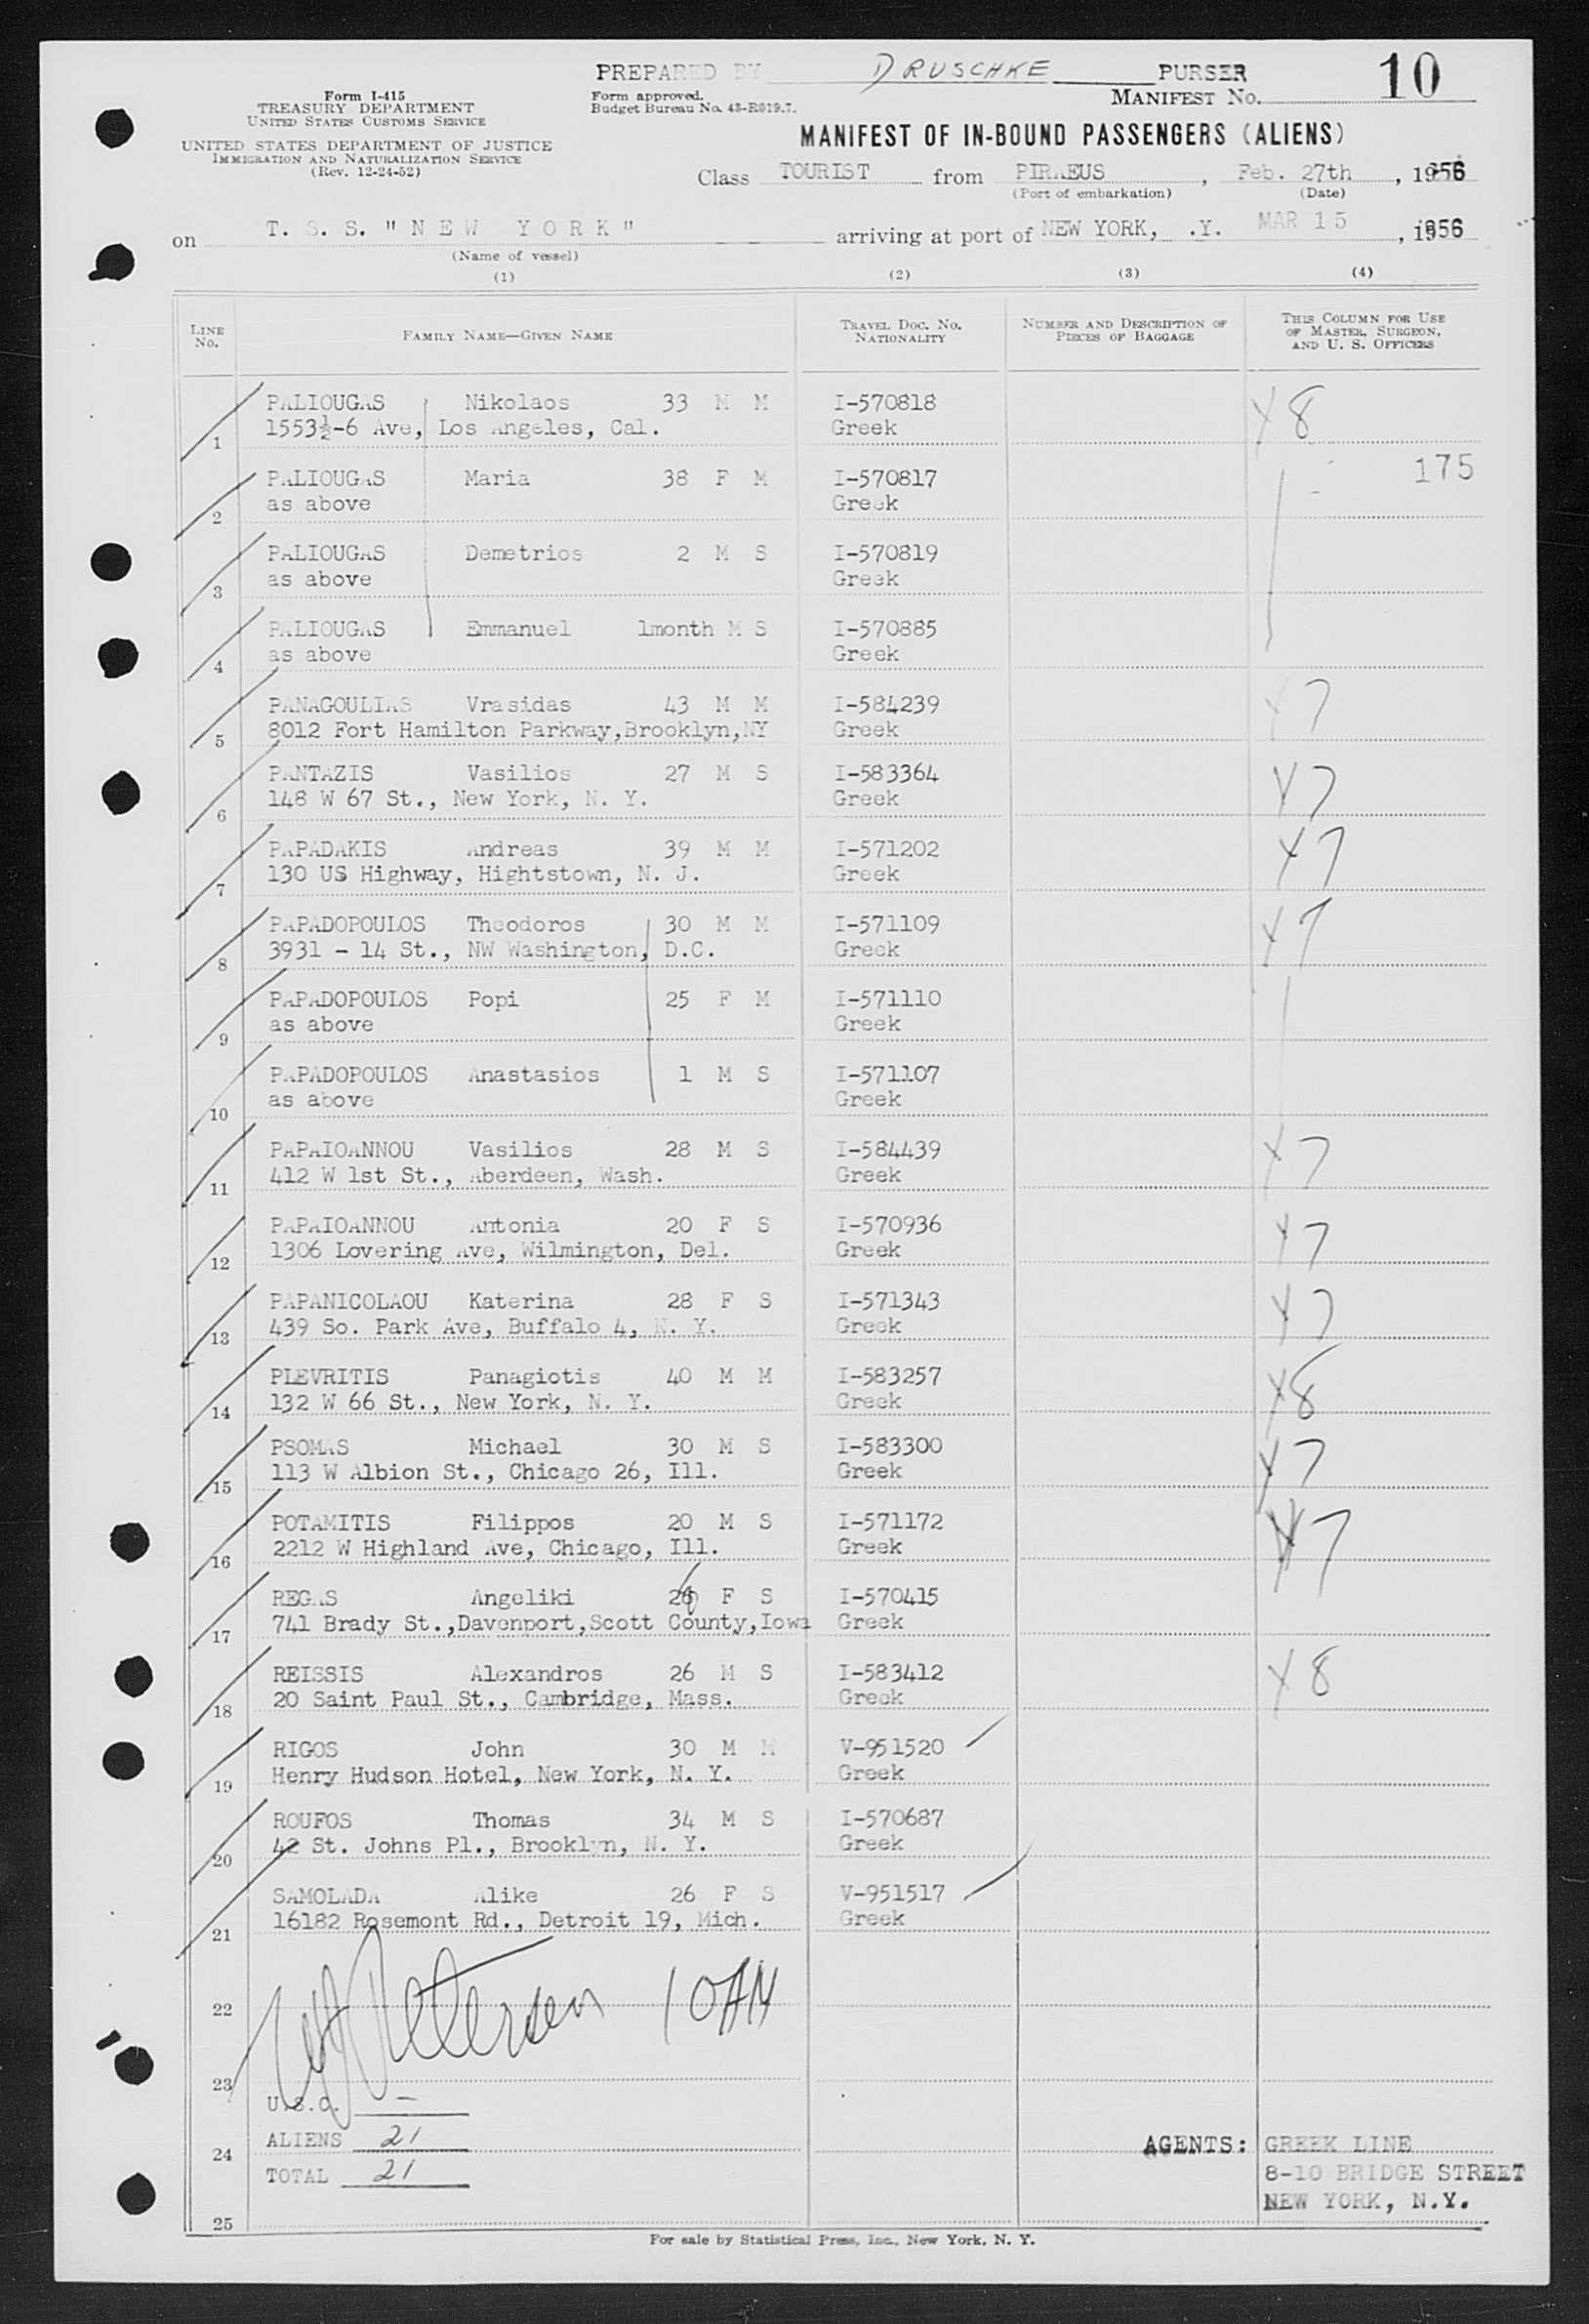 PREPARED BY DRUSCHKE PURSER
10
Form I-415
TREASURY DEPARTMENT
UNITED STATES CUSTOMS SERVICE
UNITED STATES DEPARTMENT OF JUSTICE
IMMIGRATION AND NATURALIZATION SERVICE
(Rev. 12-24-52)
Form approved.
Budget Bureau No. 43-R019.7.
MANIFEST NO.
MANIFEST OF IN-BOUND PASSENGERS (ALIENS)
Class TOURIST from PIRAEUS, Feb. 27th, 1956
(Port of embarkation) (Date)
on T. S. S. "NEW YORK" arriving at port of NEW YORK, .Y. MAR 15, 1956
(Name of vessel)
(1) (2) (3) (4)
LINE NO.
FAMILY NAME—GIVEN NAME
TRAVEL DOC. NO. NATIONALITY
NUMBER AND DESCRIPTION OF PIECES OF BAGGAGE
THIS COLUMN FOR USE OF MASTER, SURGEON, AND U. S. OFFICERS
PALIOUGAS Nikolaos 33 M M I-570818 X8
1 1553½-6 Ave, Los Angeles, Cal. Greek
PALIOUGAS Maria 38 F M I-570817 175
2 as above Greek
PALIOUGAS Demetrios 2 M S I-570819
3 as above Greek
PALIOUGAS Emmanuel 1month M S I-570885
4 as above Greek
PANAGOULIAS Vrasidas 43 M M I-584239 X7
5 8012 Fort Hamilton Parkway,Brooklyn,NY Greek
PANTAZIS Vasilios 27 M S I-583364 X7
6 148 W 67 St., New York, N. Y. Greek
PAPADAKIS Andreas 39 M M I-571202 X7
7 130 US Highway, Hightstown, N. J. Greek
PAPADOPOULOS Theodoros 30 M M I-571109 X7
8 3931 - 14 St., NW Washington, D.C. Greek
PAPADOPOULOS Popi 25 F M I-571110
9 as above Greek
PAPADOPOULOS Anastasios 1 M S I-571107
10 as above Greek
PAPAIOANNOU Vasilios 28 M S I-584439 X7
11 412 W 1st St., Aberdeen, Wash. Greek
PAPAIOANNOU Antonia 20 F S I-570936 X7
12 1306 Lovering Ave, Wilmington, Del. Greek
PAPANICOLAOU Katerina 28 F S I-571343 X7
13 439 So. Park Ave, Buffalo 4, N. Y. Greek
PLEVRITIS Panagiotis 40 M M I-583257 X8
14 132 W 66 St., New York, N. Y. Greek
PSOMAS Michael 30 M S I-583300 X7
15 113 W Albion St., Chicago 26, Ill. Greek
POTAMITIS Filippos 20 M S I-571172 X7
16 2212 W Highland Ave, Chicago, Ill. Greek
REGAS Angeliki 26 F S I-570415
17 741 Brady St.,Davenport,Scott County,Iowa Greek
REISSIS Alexandros 26 M S I-583412 X8
18 20 Saint Paul St., Cambridge, Mass. Greek
RIGOS John 30 M M V-951520
19 Henry Hudson Hotel, New York, N. Y. Greek
ROUFOS Thomas 34 M S I-570687
20 42 St. Johns Pl., Brooklyn, N. Y. Greek
SAMOLADA Alike 26 F S V-951517
21 16182 Rosemont Rd., Detroit 19, Mich. Greek
22 Petersen 10AM
23
U.S.C. —
24 ALIENS 21 AGENTS: GREEK LINE
TOTAL 21 8-10 BRIDGE STREET
NEW YORK, N.Y.
25
For sale by Statistical Press, Inc., New York, N. Y.